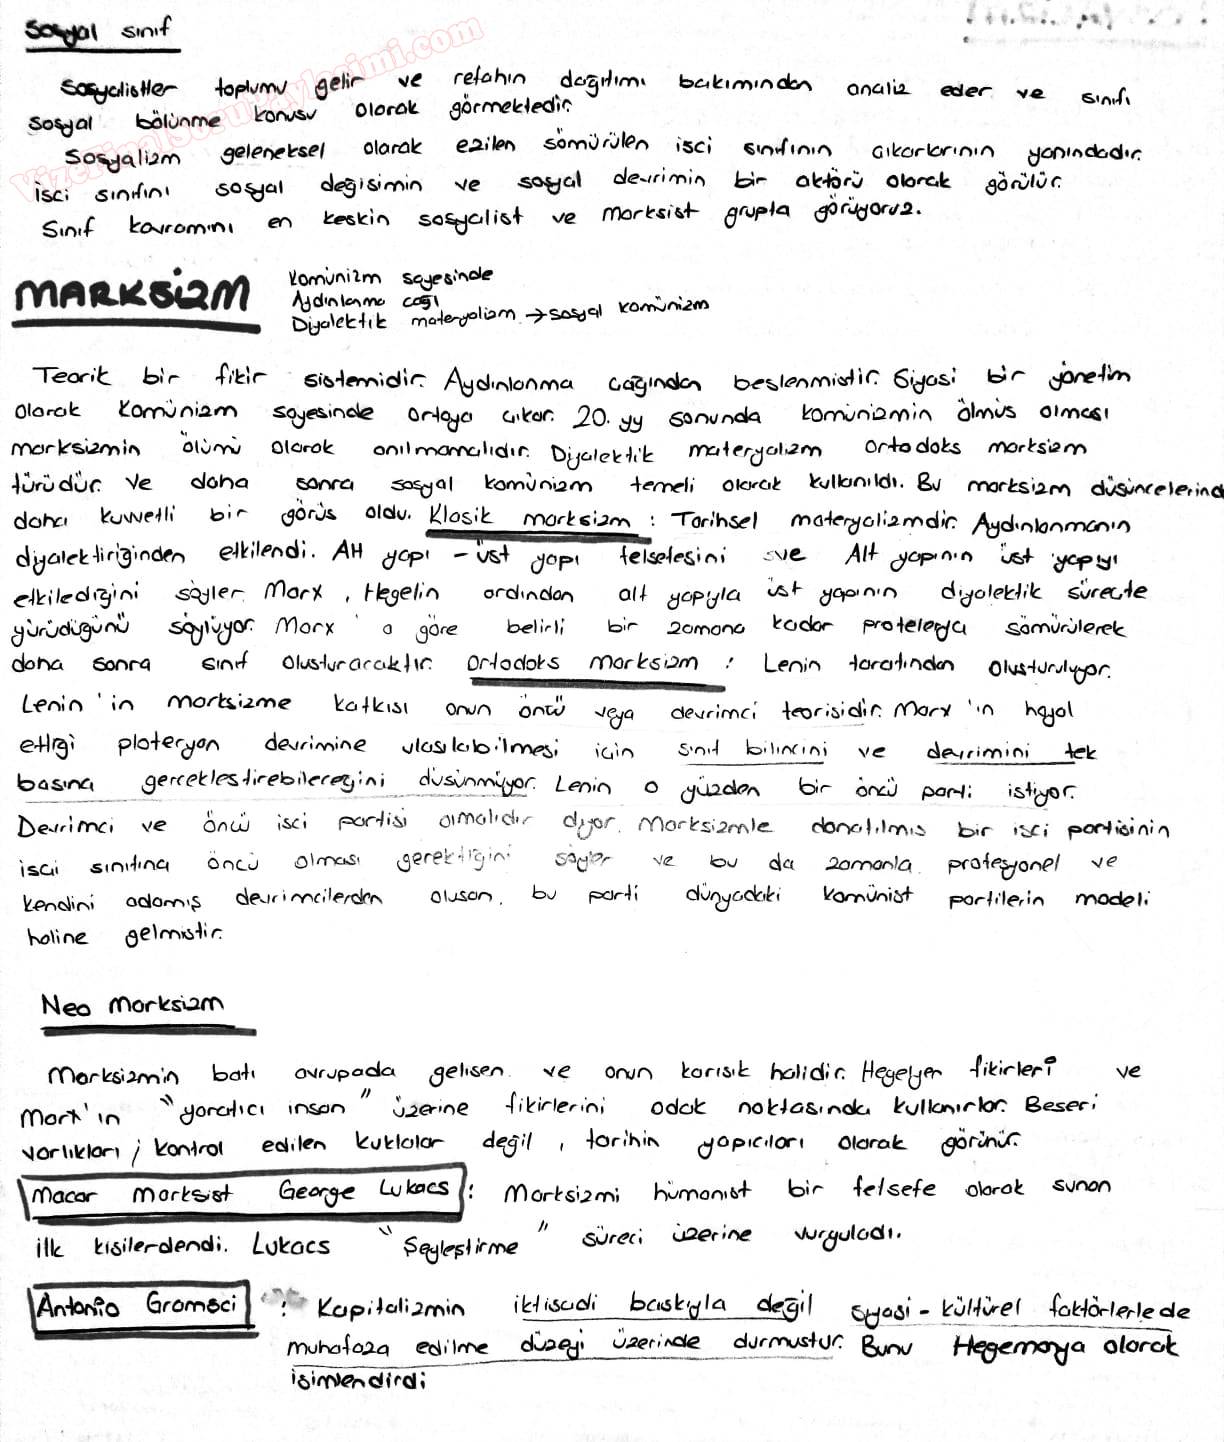 Sosyal sınıf
Sosyalistler toplumu gelir ve refahın dağıtımı bakımından analiz eder ve sınıfı
sosyal bölünme konusu olarak görmektedir.
Sosyalizm geleneksel olarak ezilen sömürülen isci sınıfının cıkarlarının yanındadır.
isci sınıfını sosyal değisimin ve sosyal devrimin bir aktörü olarak görülür.
Sınıf kavramını en keskin sosyalist ve Marksist grupta görüyoruz.
MARKSİZM
Komünizm sayesinde
Aydınlanma cağı
Diyalektik materyalizm → sosyal komünizm
Teorik bir fikir sistemidir. Aydınlanma cağından beslenmistir. Siyasi bir yönetim
olarak Komünizm sayesinde ortaya cıkar. 20. yy sonunda komünizmin ölmüs olması
marksizmin ölümü olarak anılmamalıdır. Diyalektik materyalizm ortodoks marksizm
türüdür. ve daha sonra sosyal komünizm temeli olarak kullanıldı. Bu marksizm düsüncelerinden
daha kuvvetli bir görüs oldu. Klasik marksizm : Tarihsel materyalizmdir. Aydınlanmanın
diyalektiriğinden etkilendi. Alt yapı - üst yapı felsefesini ve Alt yapının üst yapıyı
etkilediğini söyler. Marx , Hegelin ardından alt yapıyla üst yapının diyalektik sürecte
yürüdüğünü söylüyor. Marx' a göre belirli bir zamana kadar protelerya sömürülerek
daha sonra sınıf olusturacaktır. Ortodoks marksizm : Lenin tarafından olusturuluyor.
Lenin'in marksizme katkısı onun öncü veya devrimci teorisidir. Marx'ın hayal
ettiği ploteryan devrimine ulasılabilmesi icin sınıf bilincini ve devrimini tek
basına gerceklestirebileceğini düsünmüyor. Lenin o yüzden bir öncü parti istiyor.
Devrimci ve öncü isci partisi olmalıdır diyor. Marksizmle donatılmıs bir isci partisinin
isci sınıfına öncü olması gerektiğini söyler ve bu da zamanla profesyonel ve
kendini adamış devrimcilerden olusan, bu parti dünyadaki komünist partilerin modeli
haline gelmistir.
Neo Marksizm
Marksizmin batı avrupada gelisen ve onun karısık halidir. Hegelyen fikirleri ve
Marx'ın "yaratıcı insan" üzerine fikirlerini odak noktasında kullanırlar. Beseri
varlıkları ; kontrol edilen kuklalar değil , tarihin yapıcıları olarak görünür.
Macar Marksist George Lukacs : Marksizmi hümanist bir felsefe olarak sunan
ilk kisilerdendi. Lukacs "Şeyleştirme" süreci üzerine vurguladı.
Antonio Gramsci : Kapitalizmin iktisadi baskıyla değil siyasi - kültürel faktörlerle de
muhafaza edilme düzeyi üzerinde durmustur. Bunu Hegemonya olarak
isimlendirdi
VizeFinalSoruPaylasimi.com